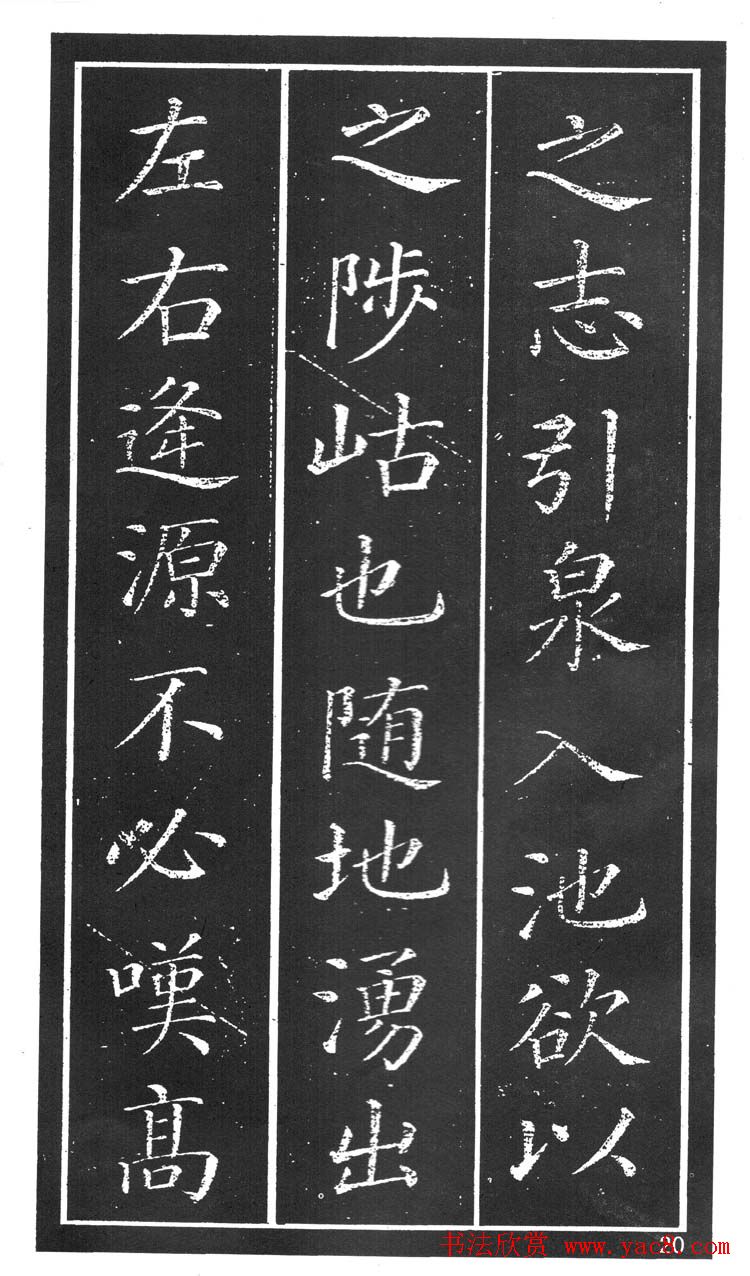 之志引泉入池欲以
之陟岵也随地湧出
左右逢源不必嘆髙
20
书法欣赏 www.yac8.com